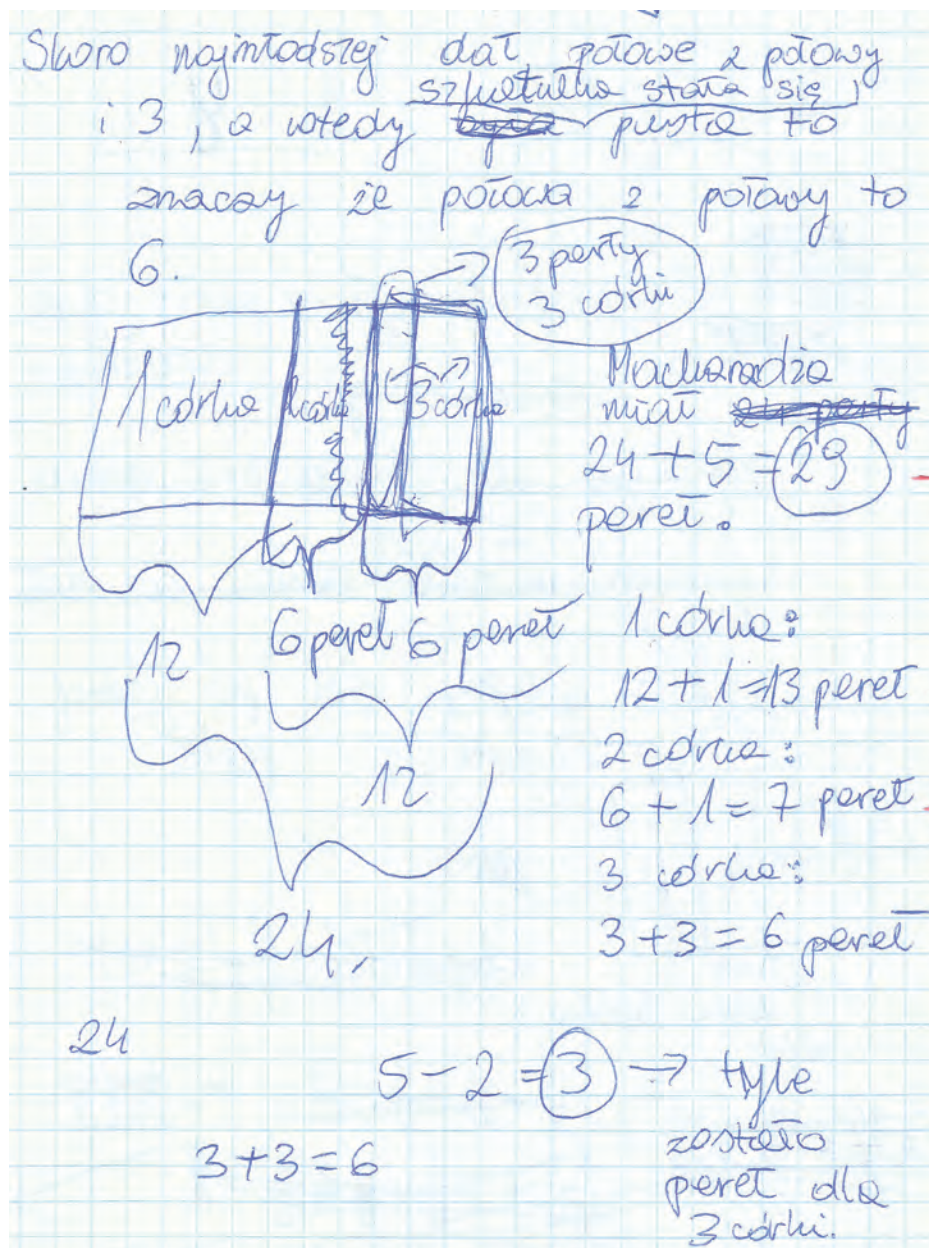 Skoro najmłodszej dał połowę z połowy
szkatułka stała się
i 3, a wtedy pusta to
znaczy że połowa z połowy to
6.
3 perły
3 córki
1 córka
2 córka
3 córka
Macharadża
miał 24 perły
24 + 5 = 29
pereł.
12
6 pereł 6 pereł
12
24,
1 córka:
12 + 1 = 13 pereł
2 córka:
6 + 1 = 7 pereł
3 córka:
3 + 3 = 6 pereł
24
5 - 2 = 3 → tyle
zostało
pereł dla
3 córki.
3 + 3 = 6